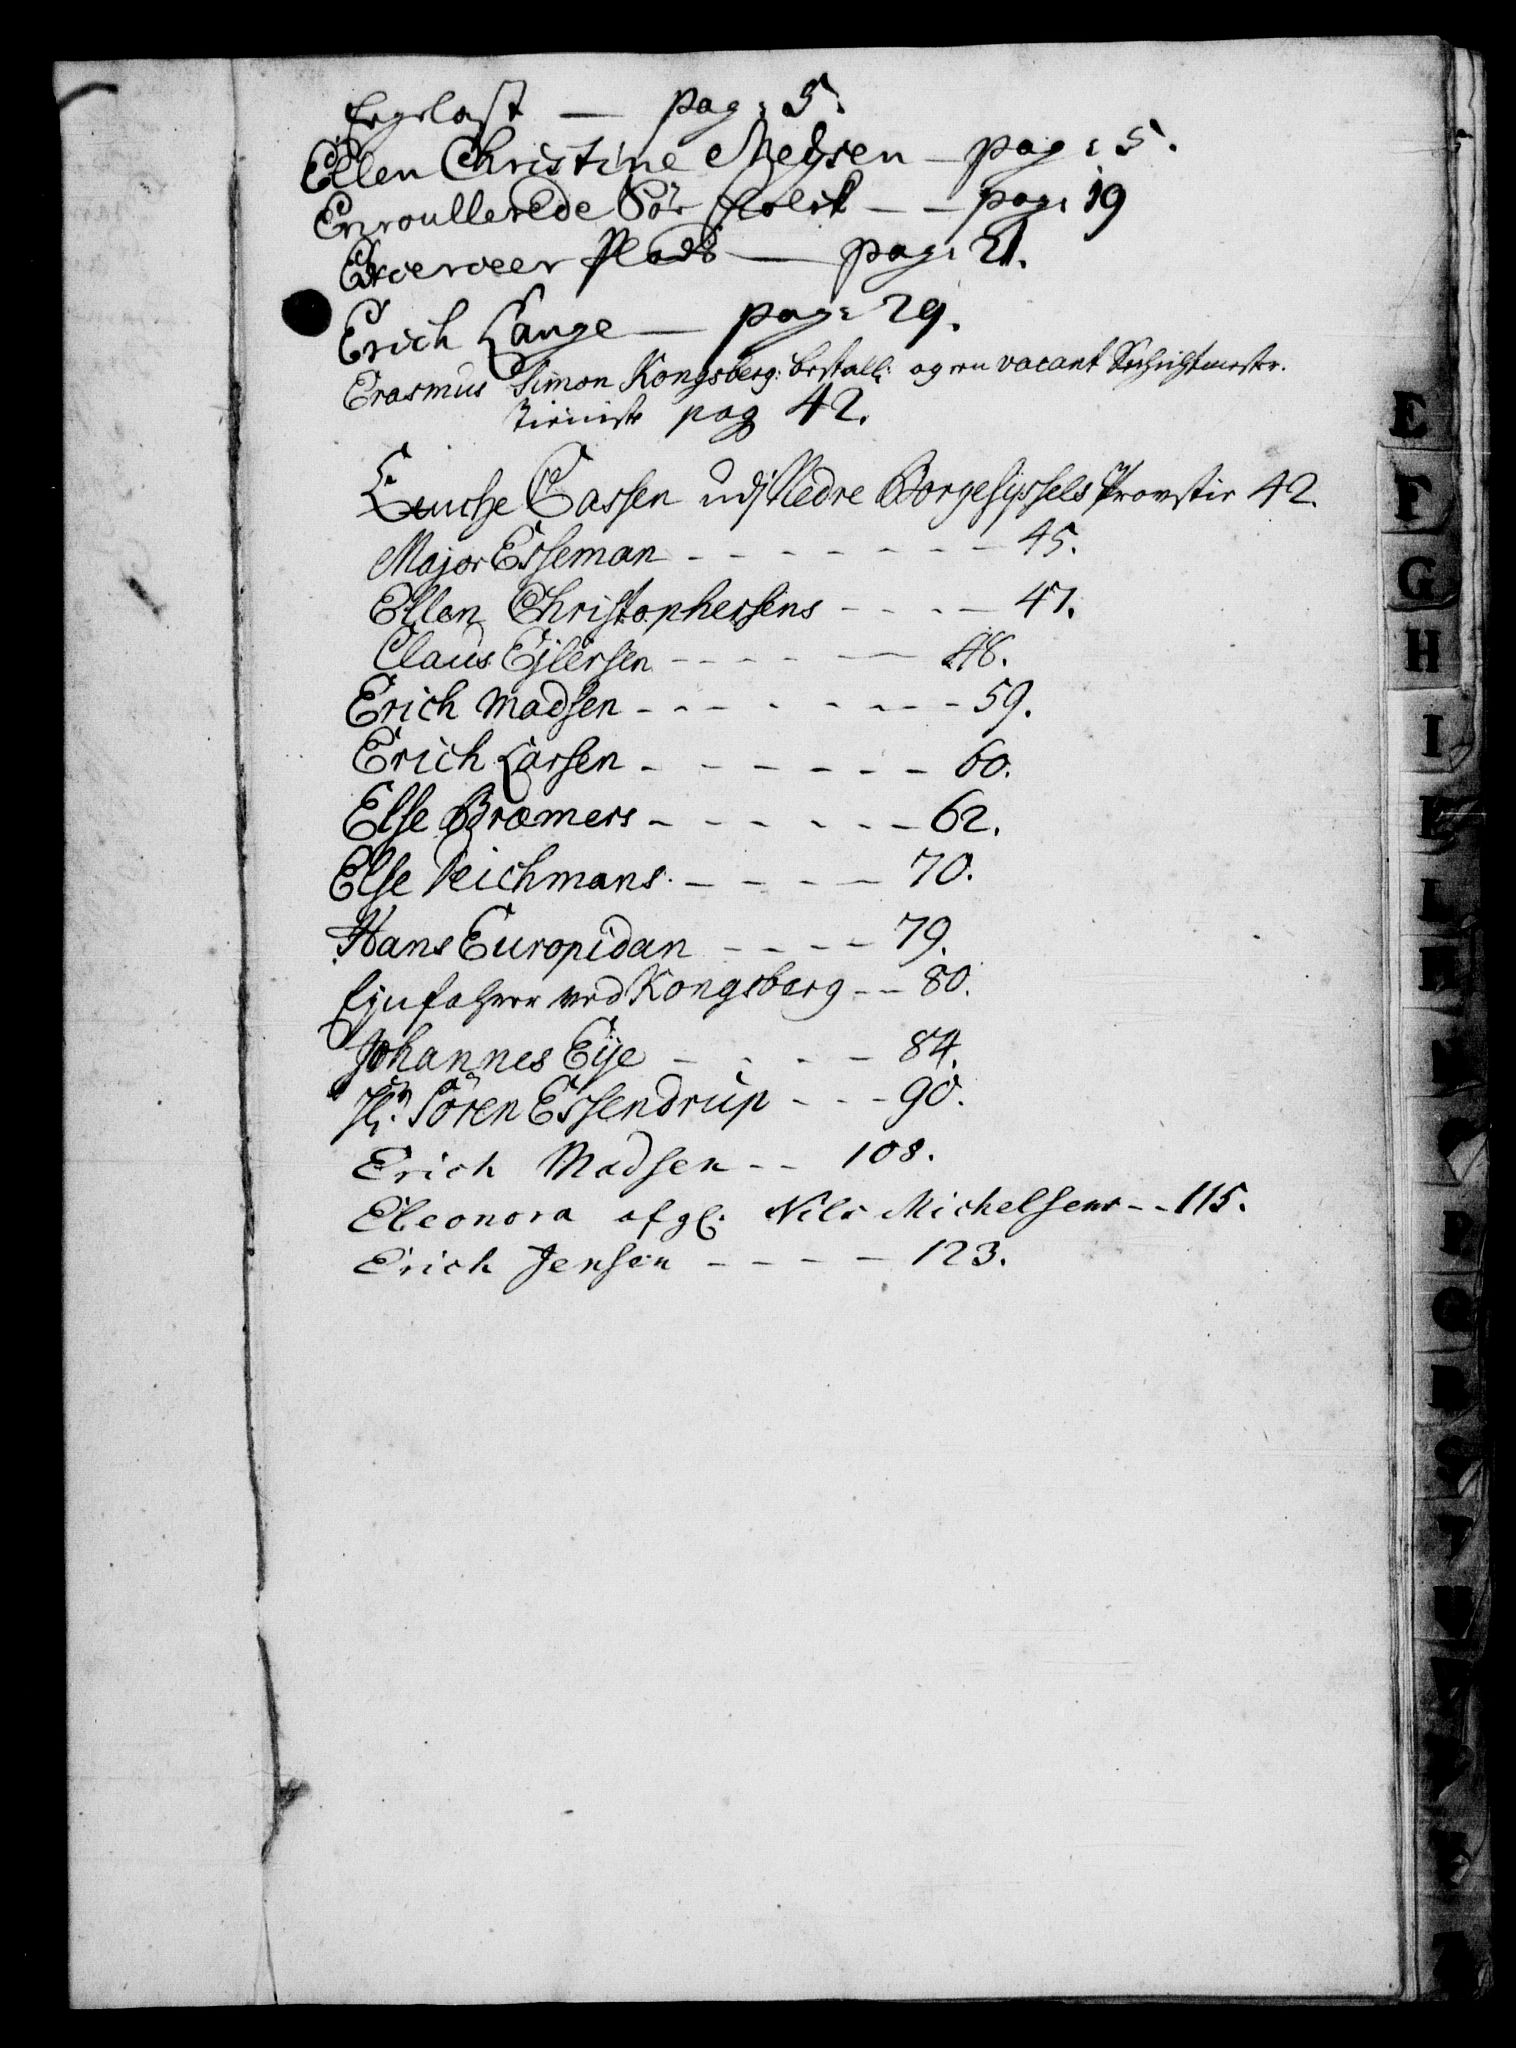 Egelast — pag: 5.
Ellen Christine Medsen — pag: 5.
Enroullerede Söe folck — — pag: 19
Exerceer Plads — pag: 21.
Erich Lange — pag: 29.
Erasmus Simon Kongsberg: bestall: og en vacant Schichtmestr.
Tieniste pag 42.
Encke Cassen udj Nedre Borgesyssels Provstie 42.
Major Esseman - - - - - - - - 45.
Ellen Christophersens - - - - 47.
Claus Ejlersen - - - - - 48.
Erich Madsen - - - - - - - - 59.
Erich Larsen - - - - - - - 60.
Else Bræmers - - - - - - - 62.
Else Deichmans - - - - 70.
Hans Europidan - - - - 79.
ved Kongsberg - - 80.
Johannes Eye - - - - - 84.
Hr. Sören Essendrup - - - 90.
Erich Madsen - - 108.
Eleonora afgl. Nils Michelsens - - 115.
Erich Jensen - - - - - 123.
E
F
G
H
I
K
L
M
N
O
P
Q
R
S
T
U